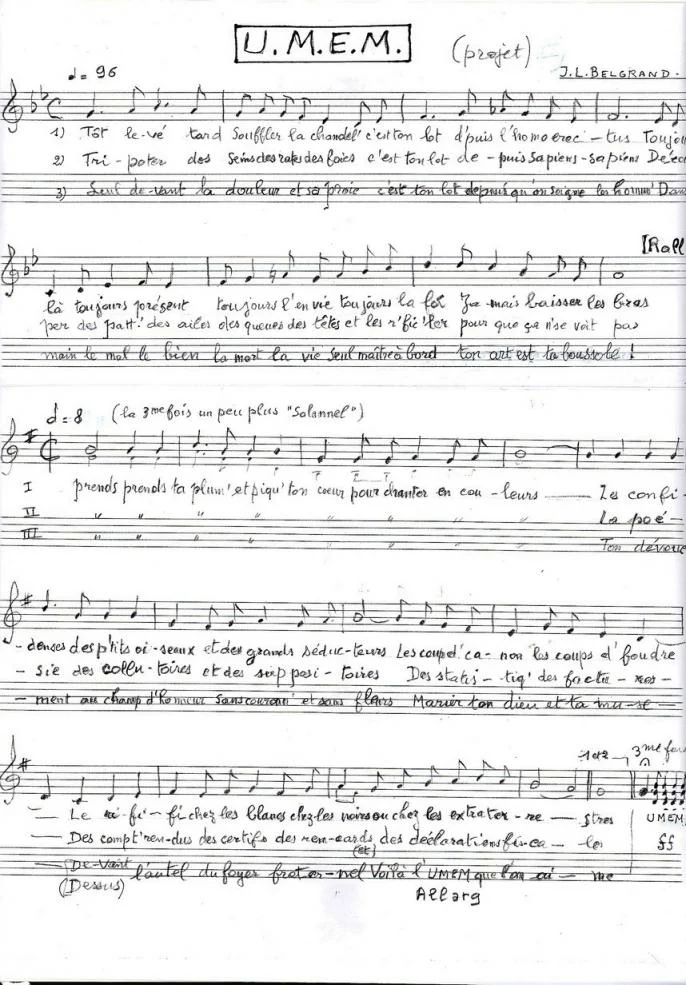 U.M.E.M.
(projet)
♩= 96
J.L. BELGRAND.
1) Tôt le-vé tard Souffler la chandel' c'est ton lot d'puis l'homo erec - tus Toujou
2) Tri-poter des Seins des rates des foies c'est ton lot de - puis Sapiens - sapiens
3) Seul de-vant la douleur et sa proie c'est ton lot depuis qu'on soigne les homm' Dans
[Rall
là toujours présent toujours l'envie toujours la foi Ja-mais baisser les bras
per des patt' des ailes des queues des têtes et les r'fic'ler pour que ça n'se voit pas
main le mal le bien la mort la vie seul maître à bord ton art est ta boussole !
(la 3me fois un peu plus "Solannel")
I prends prends ta plum' et piqu' ton coeur pour chanter en cou-leurs Les confi-
II " " " " " " " La poé-
III " " " " " " " Ton dévoue
- denses des p'tits oi-seaux et des grands séduc-teurs Les coups d'ca-non les coups d'foudre
- sie des collu-toires et des supposi-toires Des statis-tiq' des factu-res-
- ment au champ d'honneur Sans couronn' et sans fleurs Marier ton dieu et ta mu-se-
1et2 3me fois
Le ri-fi-fi chez les blancs chez les noirs ou chez les extrater-re-stres UMEM
Des compt'ren-dus des certifs des rem-cards des déclarations fis-ca-les ff
De-vant l'autel du foyer frater-nel Voilà l'UMEM que l'on ai-me
(Dessus)
(et)
Allarg